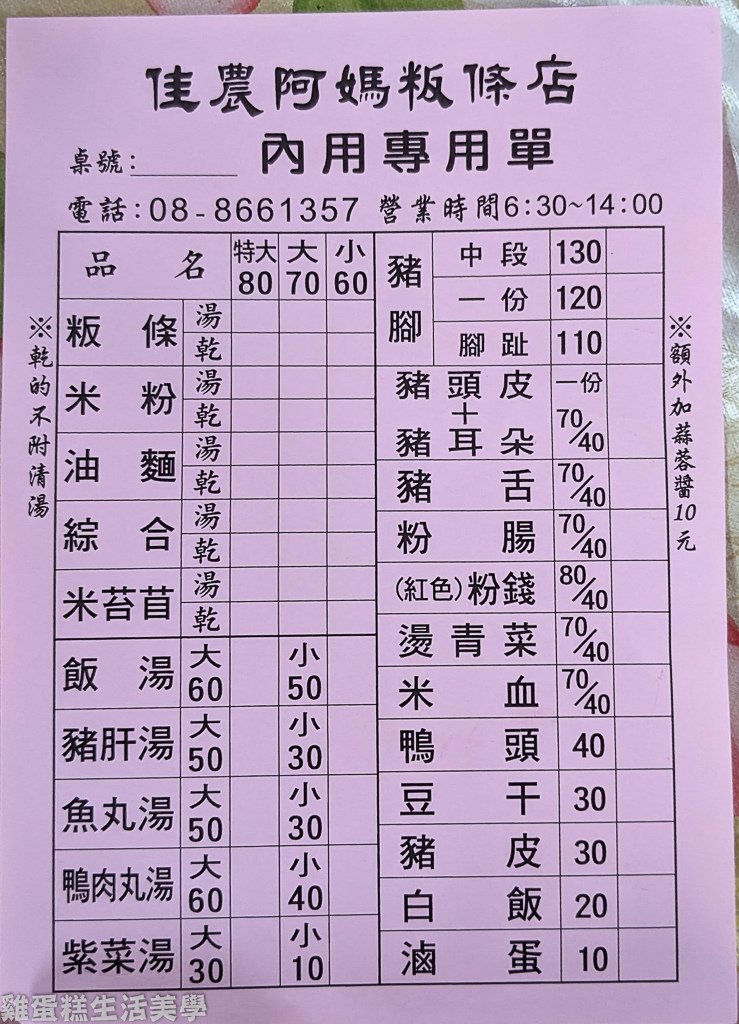 佳農阿媽粄條店
桌號：
內用專用單
電話：08-8661357 營業時間6:30~14:00
品 名 特大80 大70 小60
粄條 湯
乾
米粉 湯
乾
油麵 湯
乾
綜合 湯
乾
米苔苜 湯
乾
飯湯 大60 小50
豬肝湯 大50 小30
魚丸湯 大50 小30
鴨肉丸湯 大60 小40
紫菜湯 大30 小10
豬腳 中段 130
一份 120
腳趾 110
豬頭皮+豬耳朵 一份 70/40
豬舌 70/40
粉腸 70/40
(紅色)粉錢 80/40
燙青菜 70/40
米血 70/40
鴨頭 40
豆干 30
豬皮 30
白飯 20
滷蛋 10
※乾的不附清湯
※額外加蒜蓉醬10元
雞蛋糕生活美學